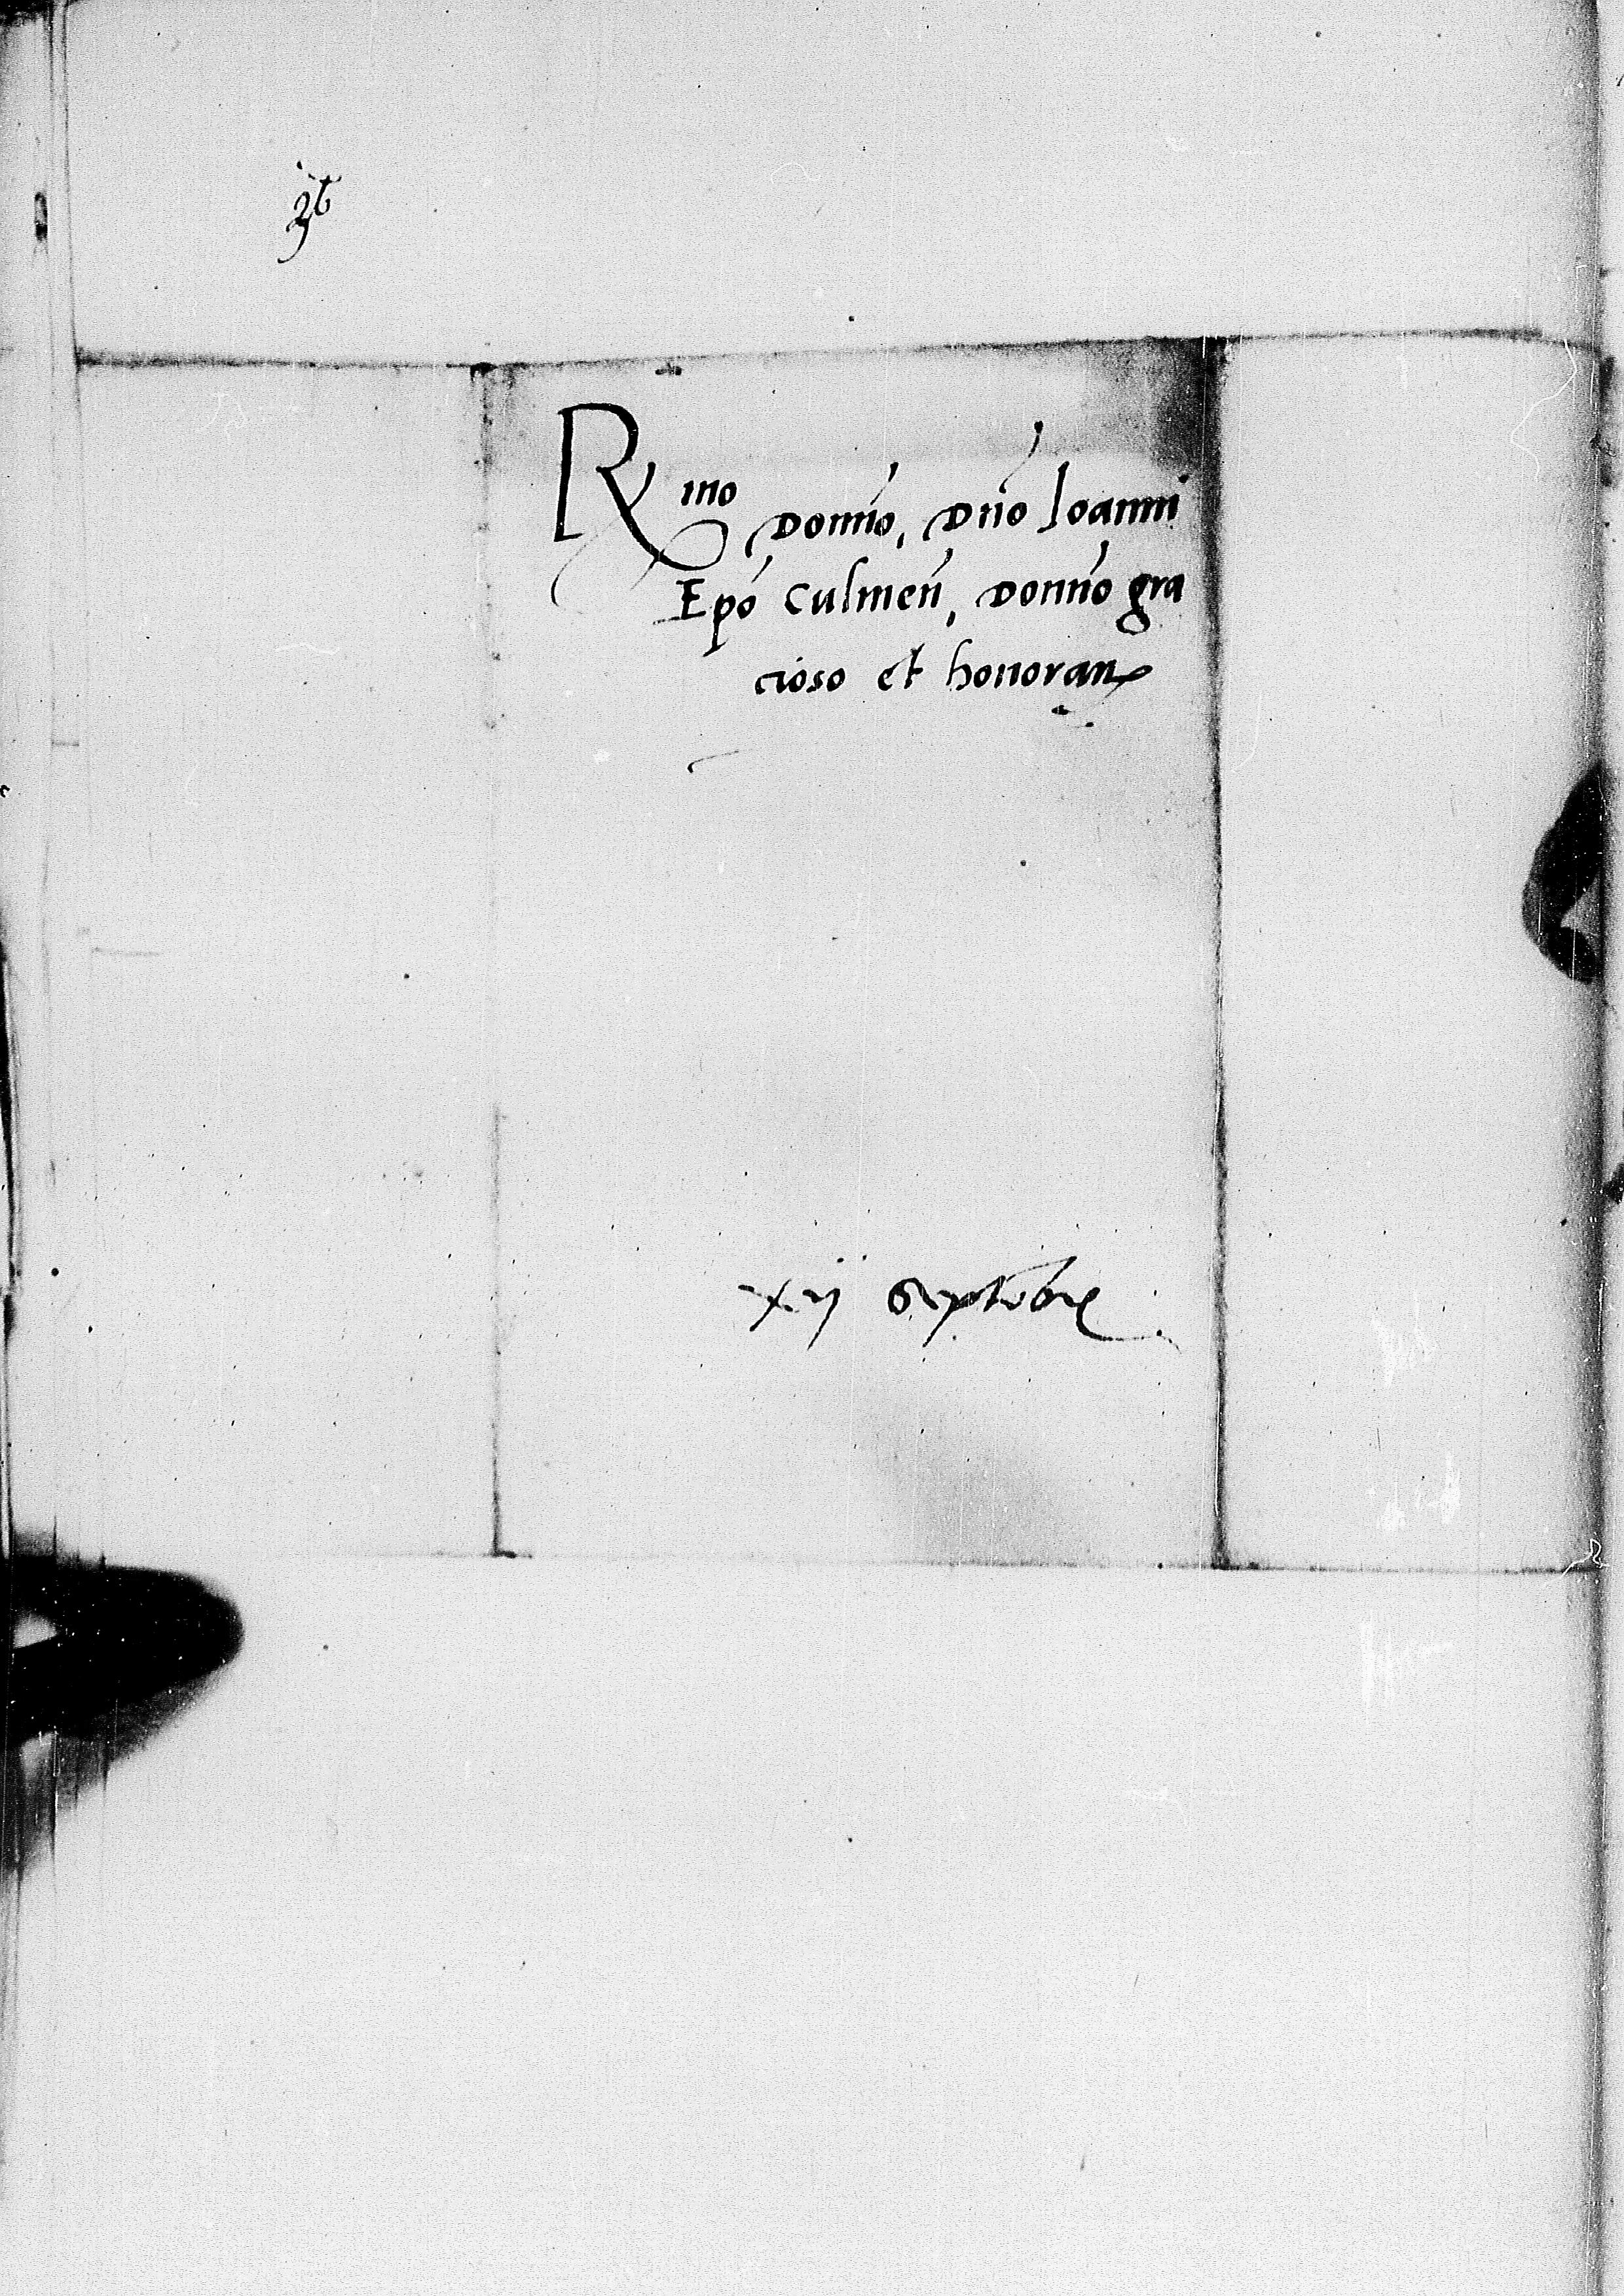 R mo Domno, Dno Ioanni
Epo Culmen, Domno gra
cioso et honoran
xij Septebre